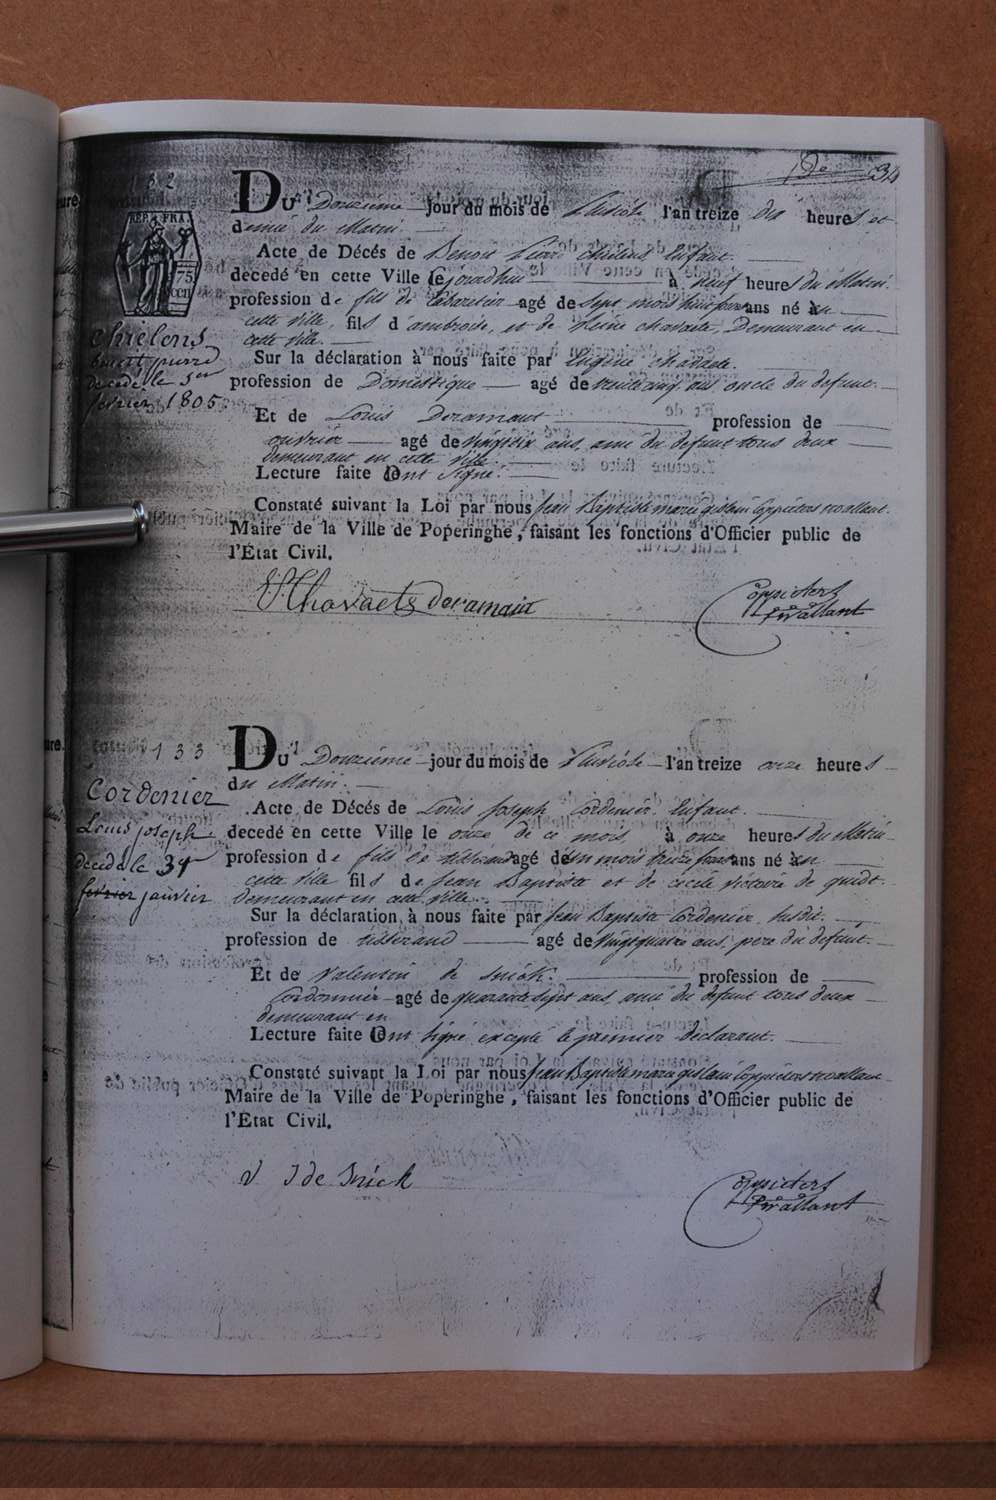 34
132
REP. FRA.
75
CEN
Chielens
decedé le 1er
fevrier 1805
Du Douzieme jour du mois de Pluviôse l'an treize dix heures et
demie du Matin.
Acte de Décés de Benoit Chielens Enfant.
decedé en cette Ville Cejourdhui à neuf heures du Matin.
profession de fils de Cabaretier agé de Sept mois ans né à en
cette ville, fils d'ambroise, et de chavaete, Demeurant en
cette ville.
Sur la déclaration à nous faite par Eugene chavaete.
profession de Domestique agé de vingtcinq ans oncle du defunt.
Et de Louis Deramaut profession de
ouvrier agé de ans, ami du defunt tous deux
demeurant en cette ville.
Lecture faite ont Signé.
Constaté suivant la Loi par nous Jean Baptiste marie gislain Coppieters
Maire de la Ville de Poperinghe, faisant les fonctions d'Officier public de
l'État Civil.
Chavaete deramaut
Coppieters
133
Cordenier
Louis joseph
decedé le 31
fevrier janvier
Du Douzieme jour du mois de Pluviôse l'an treize onze heures
du Matin.
Acte de Décés de Louis Joseph Cordenier Enfant.
decedé en cette Ville le onze de ce mois, à onze heures du Matin
profession de fils de tisserand agé de un mois treize jours ans né à en
cette ville fils de Jean Baptiste et de cecile victoire de quidt.
demeurant en cette ville.
Sur la déclaration à nous faite par Jean Baptiste Cordenier, susdit.
profession de tisserand agé de vingtquatre ans, pere du defunt.
Et de Valentin de Snick. profession de
Cordonnier agé de quarante sept ans, ami du defunt tous deux
demeurant en
Lecture faite ont signé excepté le premier declarant.
Constaté suivant la Loi par nous Jean Baptiste marie gislain Coppieters
Maire de la Ville de Poperinghe, faisant les fonctions d'Officier public de
l'État Civil.
V J de Snick
Coppieters